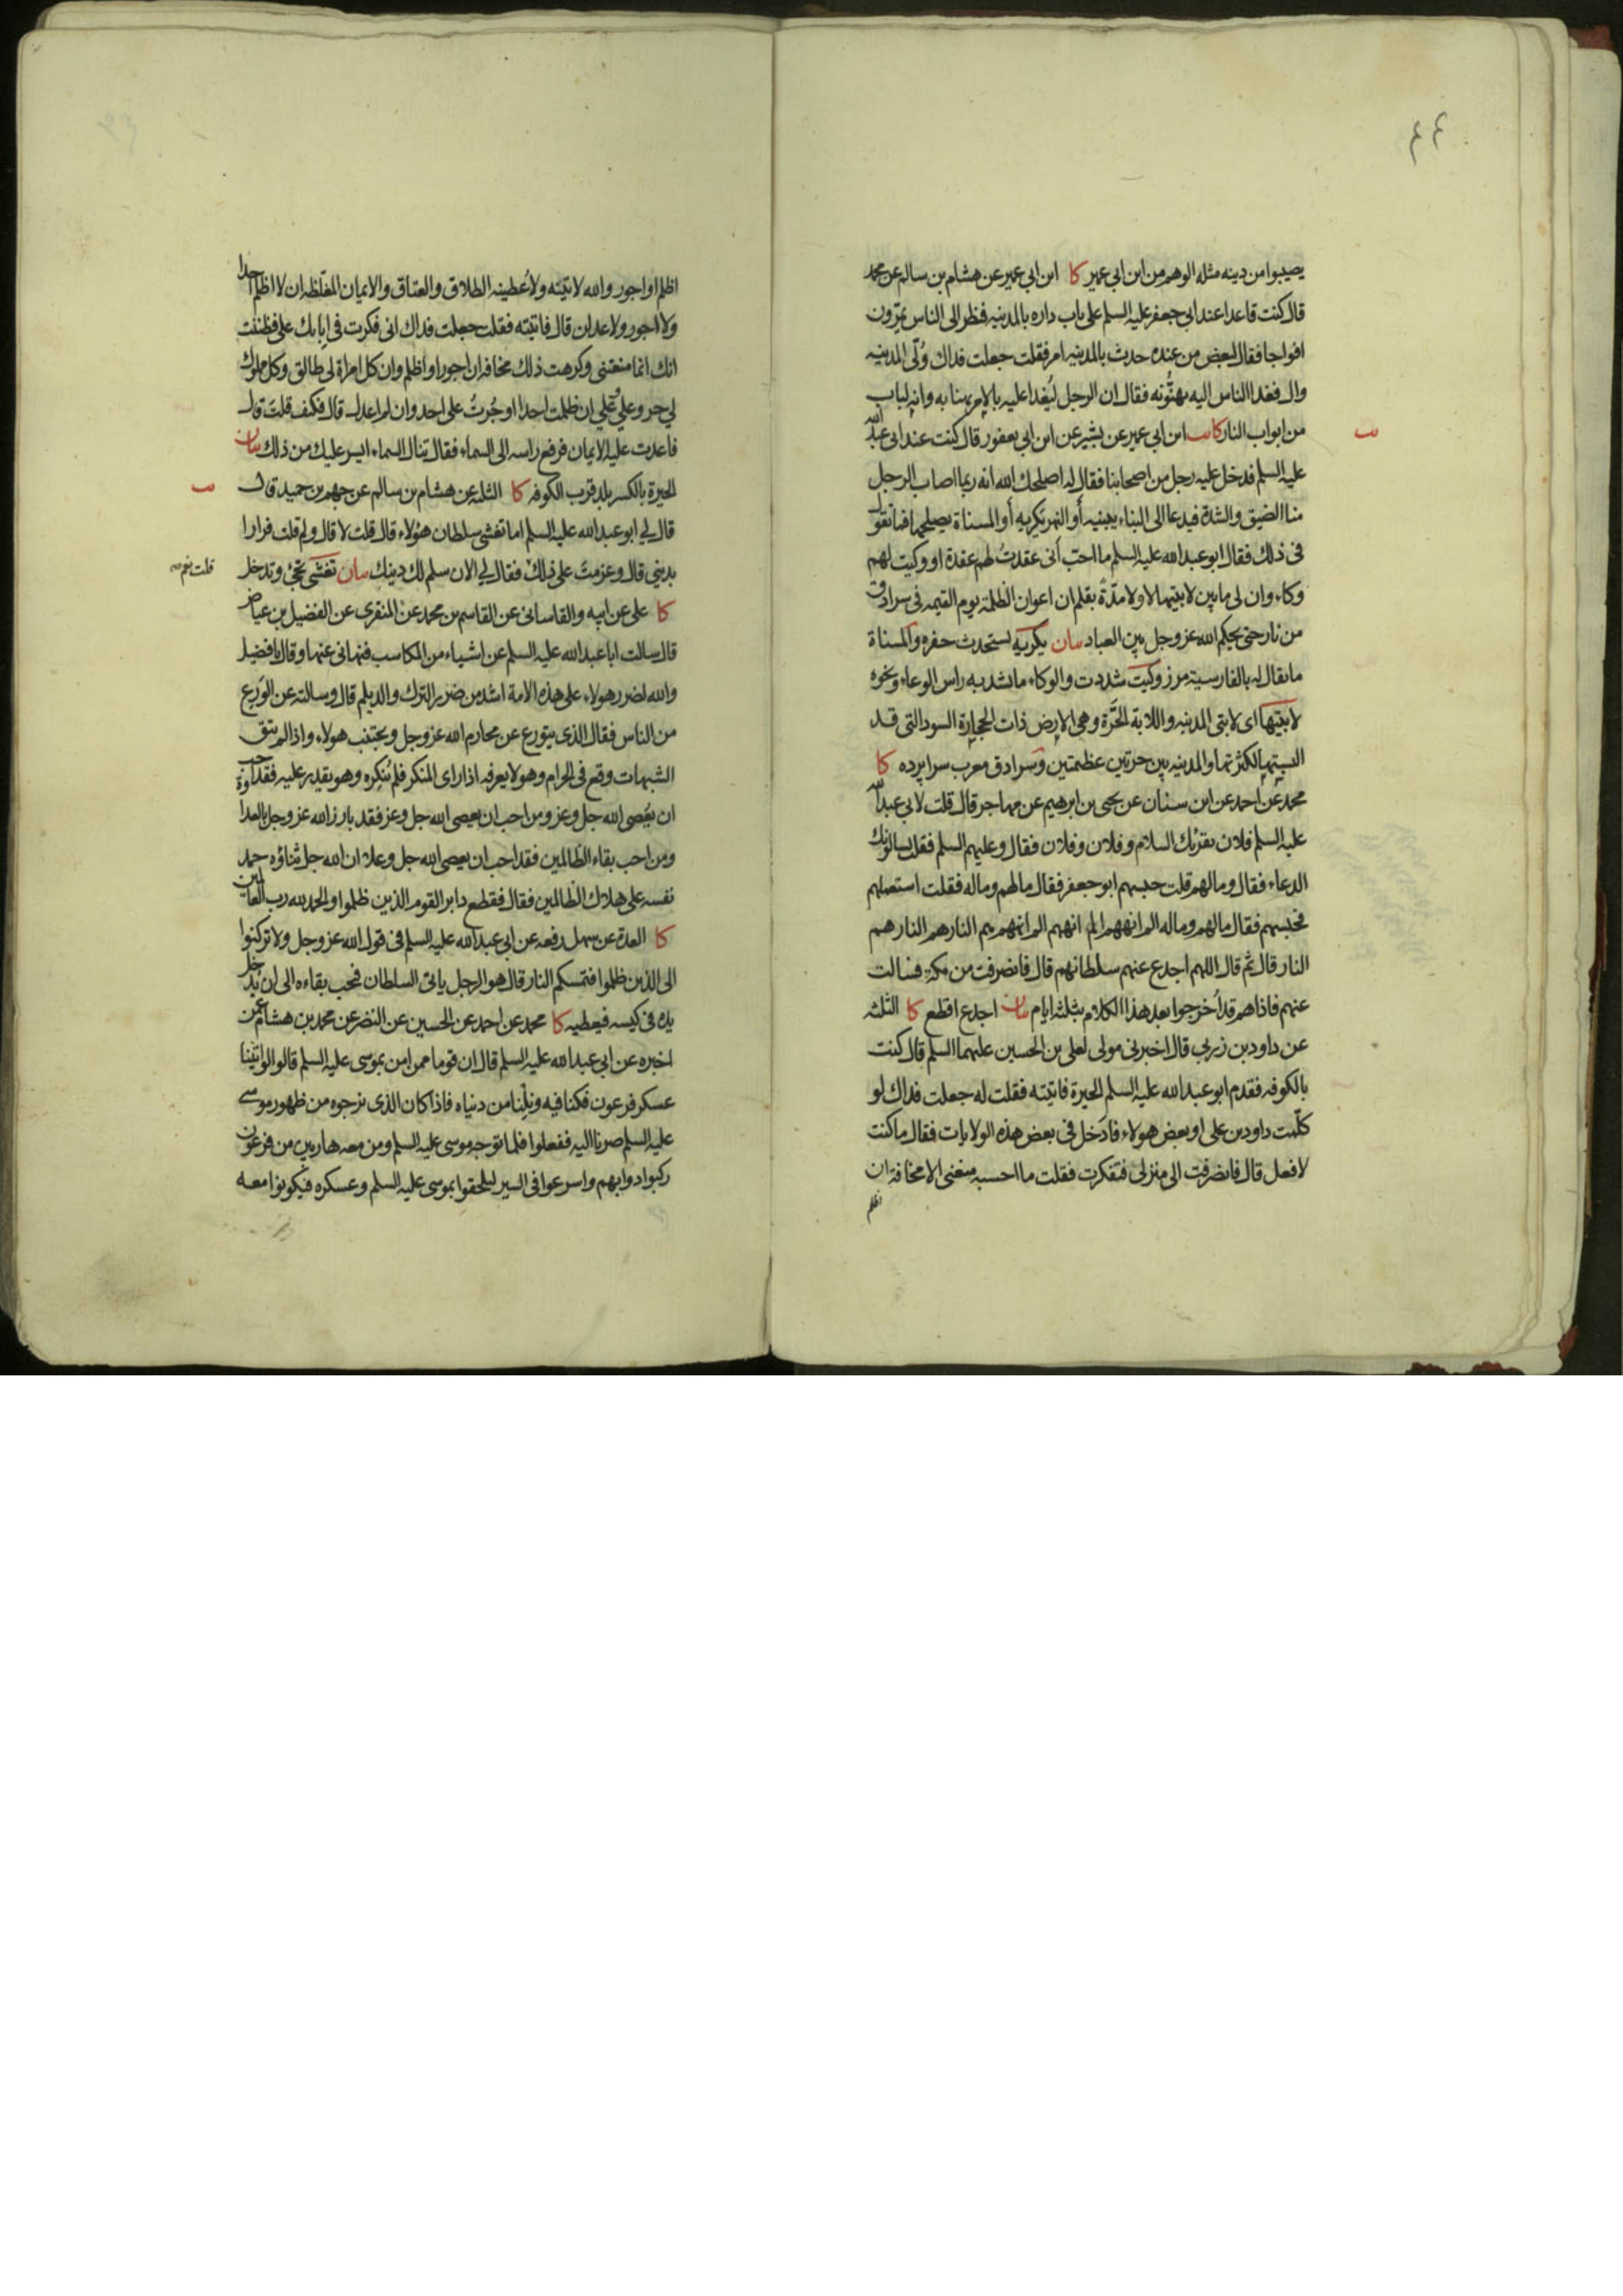 ٤٤
يصيبوا من دينه مثله الوهم من ابن ابي عمير كا ابن ابي عمير عن هشام بن سالم عن محمد
قال كنت قاعدا عند ابي جعفر عليه السلم على باب داره بالمدينه فنظر الى الناس يمرّون
افواجا فقال لبعض من عنده حدث بالمدينه امر فقلت جعلت فداك وُلّي المدينه
وال فغدا الناس اليه يهنّؤنه فقال ان الرجل ليُغدا عليه بالامر يهنا به وانه لباب
من ابواب النار كا ابن ابي عمير عن بشير عن ابن ابي يعفور قال كنت عند ابي عبد الله
عليه السلم فدخل عليه رجل من اصحابنا فقال له اصلحك الله انه ربما اصاب الرجل
منا الضيق والشدة فيدعا الى البناء يبنيه أو النهر يكريه أو المسناة يصلحها فما تقول
في ذلك فقال ابو عبد الله عليه السلم ما احبّ أني عقدتُ لهم عقدة او وكيت لهم
وكاء وان لي ما بين لابتيها لا ولا مدّةً بقلم ان اعوان الظلمة يوم القيمه في سرادق
من نار حتى يحكم الله عز وجل بين العباد بيان يكريه يستحدث حفره والمسناة
ما يقال له بالفارسية مرز وكيت شددت والوكاء ما يشد به راس الوعاء ونحوه
لابتيها اى لابتي المدينه واللابة الحَرَّة وهي الارض ذات الحجارة السود التي قد
البستها لكثرتها والمدينه بين حرتين عظيمتين وسرادق معرب سراپرده كا
محمد عن احمد عن ابن سنان عن يحيى بن ابرهيم عن مهاجر قال قلت لابي عبد الله
عليه السلم فلان يقرئك السلام وفلان وفلان فقال وعليهم السلم فقلت يسالونك
الدعاء فقال وما لهم قلت حبسهم ابو جعفر فقال ما لهم وما له فقلت استعملهم
فحبسهم فقال ما لهم وما له الم انههم الم انههم الم انههم هم النار هم النار هم
النار قال ثم قال اللهم اجدع عنهم سلطانهم قال فانصرفت من مكة فسالت
عنهم فاذا هم قد اُخرجوا بعد هذا الكلام بثلثه ايام بيان اجدع اقطع كا الثلثه
عن داود بن زربي قال اخبرني مولى لعلي بن الحسين عليهما السلم قال كنت
بالكوفه فقدم ابو عبد الله عليه السلم الحيرة فاتيته فقلت له جعلت فداك لو
كلّمت داود بن علي او بعض هولاء فادخل في بعض هذه الولايات فقال ما كنت
لافعل قال فانصرفت الى منزلي فتفكرت فقلت ما احسبه منعني الا مخافة ان
اظلم
اظلم او اجور والله لاتينه ولاُعطينه الطلاق والعتاق والايمان المغلظه ان لا اظلم احدا
ولا اجور ولاعدلن قال فاتيته فقلت جعلت فداك اني فكرت في إبائك علي فظننت
انك انما منعتني وكرهت ذلك مخافه ان اجور او اظلم وان كل امراة لي طالق وكل مملوك
لي حر وعلي وعلي ان ظلمت احدا او جُرتُ على احد وان لم اعدل قال فكيف قلتَ قال
فاعدت عليه الايمان فرفع راسه الى السماء فقال تنال السماء ايسر عليك من ذلك بيان
الحيرة بالكسر بلد قرب الكوفه كا الثلثه عن هشام بن سالم عن جهم بن حميد قال
قال لي ابو عبد الله عليه السلم اما تغشى سلطان هؤلاء قال قلت لا قال ولم قلت فرارا
بديني قال وعزمتَ على ذلك فقال لي الان سلم لك دينك بيان تغشى تجئ وتدخل
قلت نعم صه
كا علي عن ابيه والقاساني عن القاسم بن محمد عن المنقري عن الفضيل بن عياض
قال سالت ابا عبد الله عليه السلم عن اشياء من المكاسب فنهاني عنها وقال يا فضيل
والله لضرر هولاء على هذه الامة اشد من ضرر الترك والديلم قال وسالته عن الوَرِع
من الناس فقال الذى يتورع عن محارم الله عز وجل ويجتنب هولاء واذا لم يتق
الشبهات وقع في الحرام وهو لا يعرفه اذا راى المنكر فلم يُنكِره وهو يقدر عليه فقد احب
ان يُعصى الله جل وعز ومن احب ان يعصى الله جل وعز فقد بارز الله عز وجل بالعداوة
ومن احب بقاء الظالمين فقد احب ان يعصى الله جل وعلا ان الله جل ثناؤه حمد
نفسه على هلاك الظالمين فقال فقطع دابر القوم الذين ظلموا والحمد لله رب العالمين
كا العدة عن سهل رفعه عن ابي عبد الله عليه السلم في قول الله عز وجل ولا تركنوا
الى الذين ظلموا فتمسكم النار قال هو الرجل ياتى السلطان فيحب بقاءه الى ان يُدخل
يده في كيسه فيعطيه كا محمد عن احمد عن الحسين عن النضر عن محمد بن هشام عمن
اخبره عن ابي عبد الله عليه السلم قال ان قوما ممن امن بموسى عليه السلم قالوا لو اتينا
عسكر فرعون فكنا فيه ونِلْنا من دنياه فاذا كان الذى نرجوه من ظهور موسى
عليه السلم صرنا اليه ففعلوا فلما توجه موسى عليه السلم ومن معه هاربين من فرعون
ركبوا دوابهم واسرعوا في السير ليلحقوا بموسى عليه السلم وعسكره فيكونوا معه